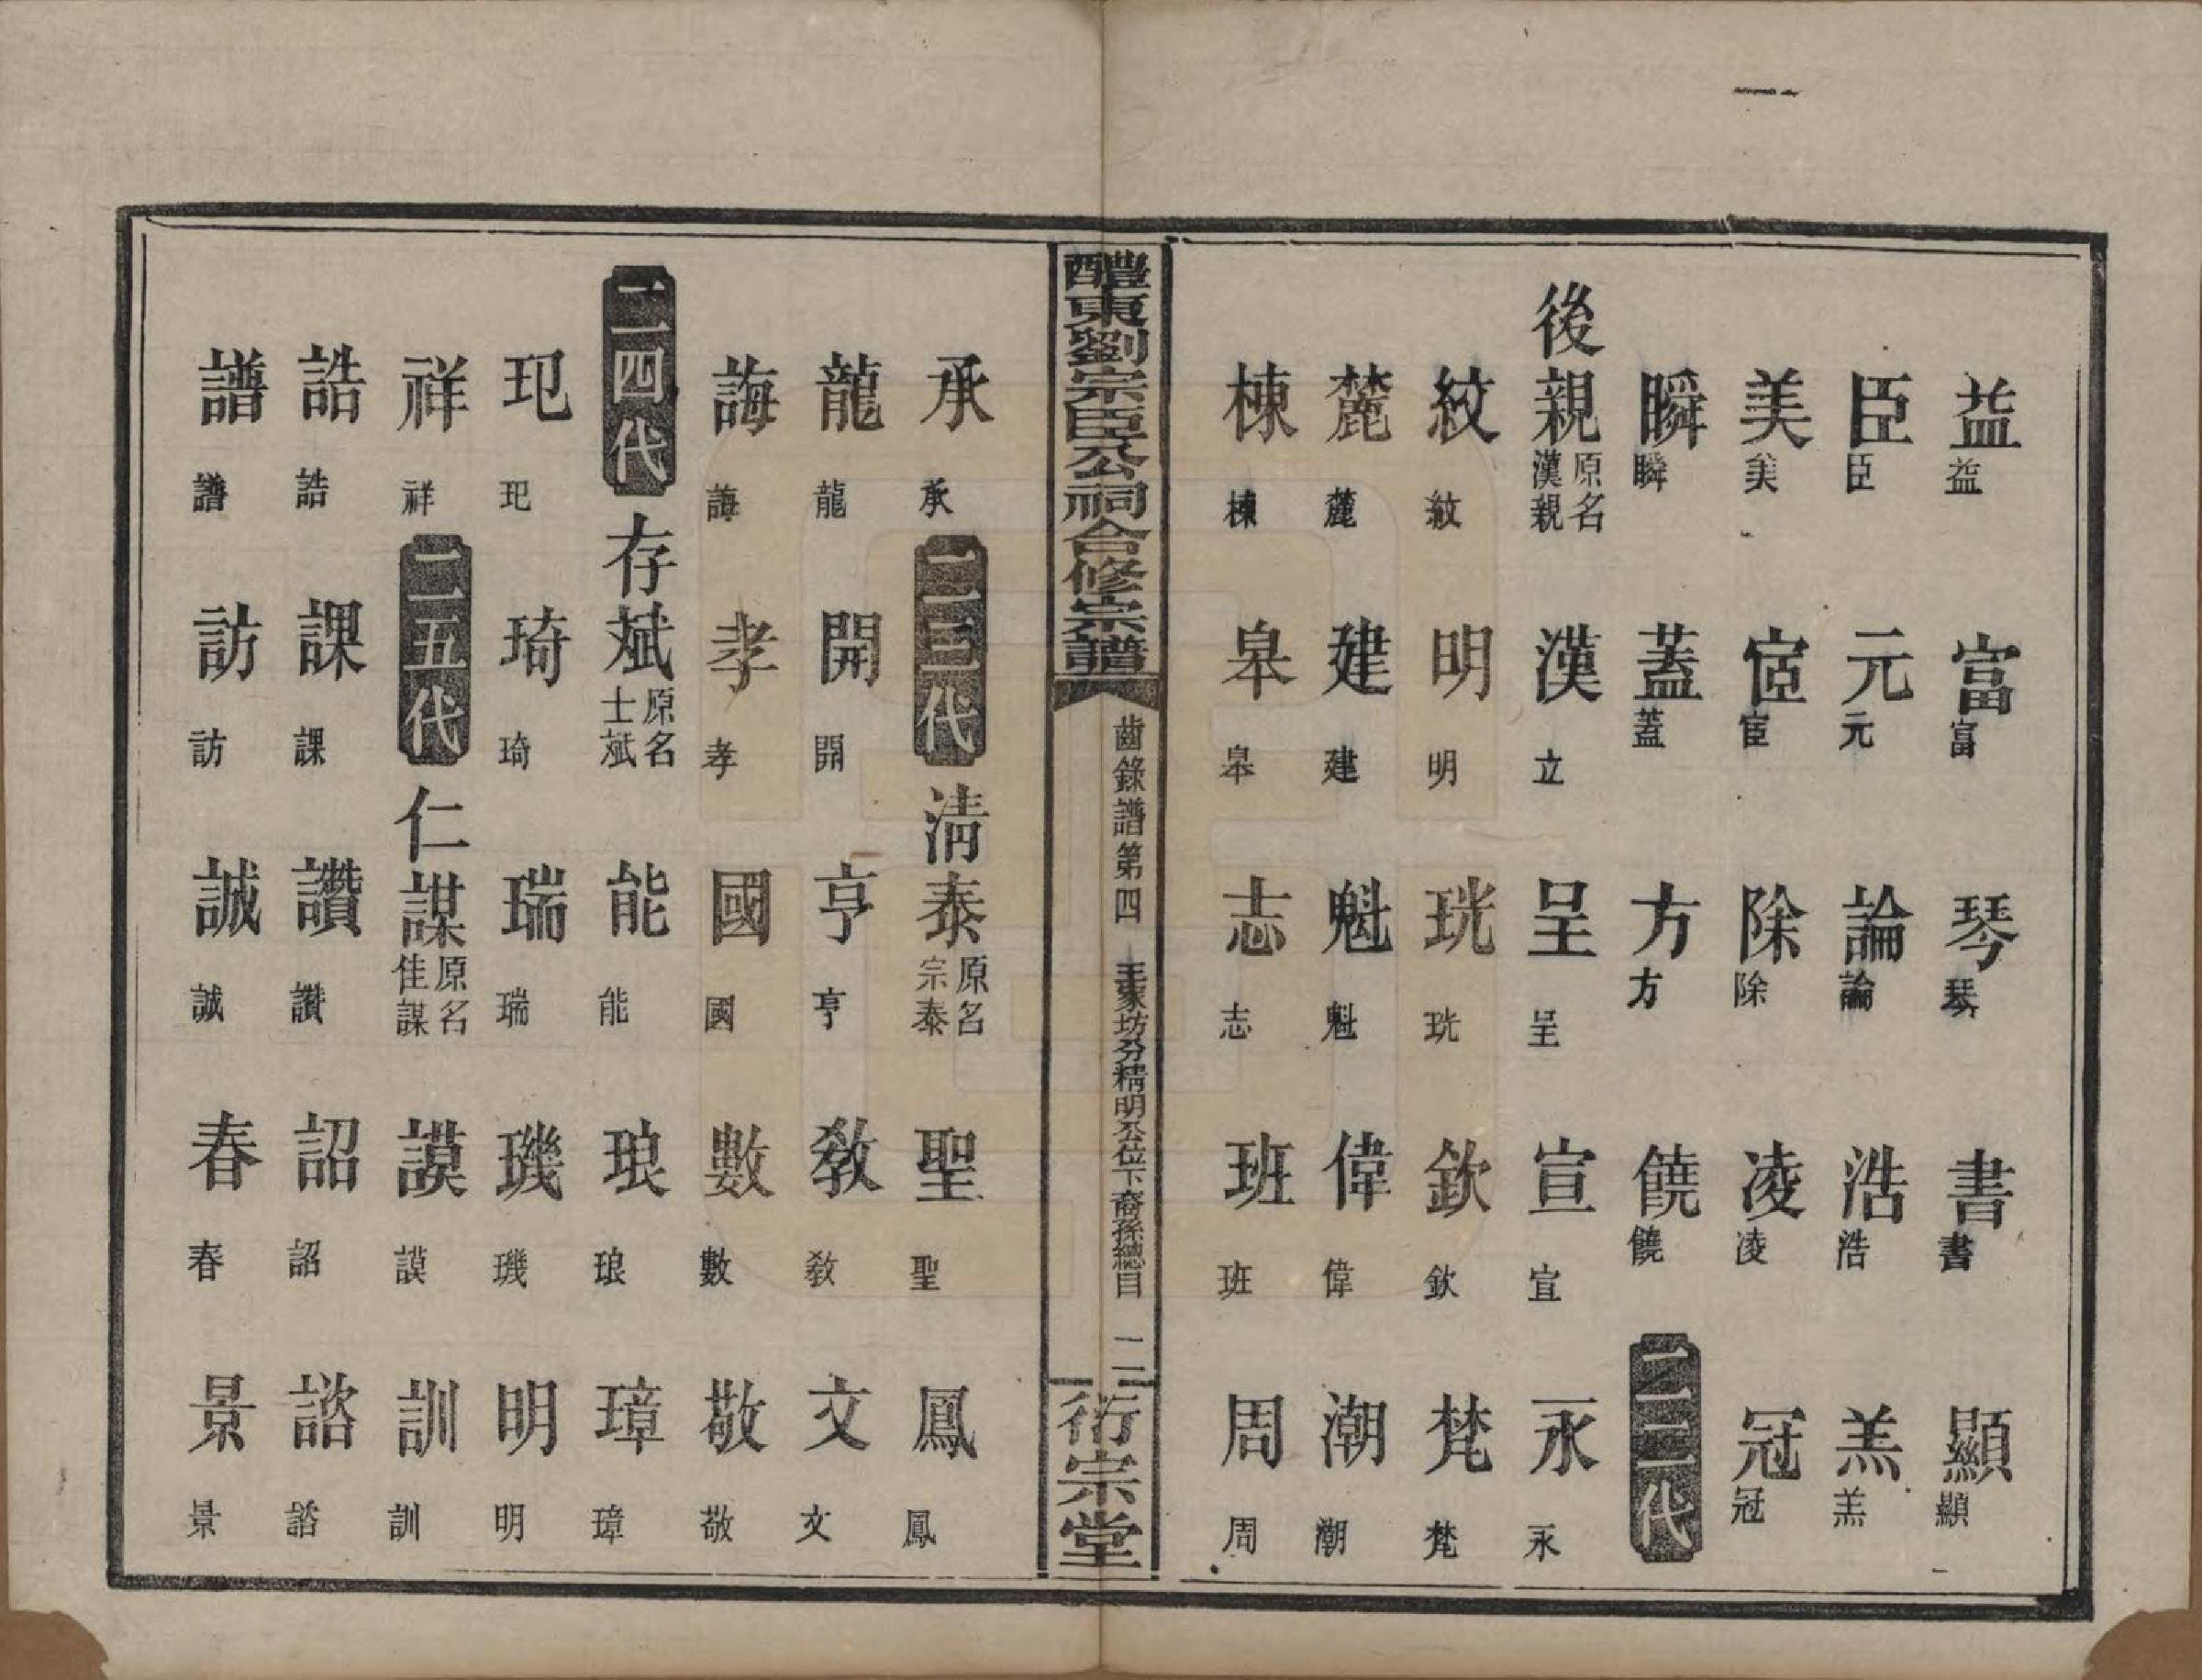 益益　富富　琴琴　書書　顯顯
臣臣　元元　論論　浩浩　羔羔
美美　宧宦　除除　凌凌　冠冠
瞬瞬　蓋蓋　方方　饒饒　二二代
後親原名漢親　漢立　呈呈　宣宣　永永
紋紋　明明　珖珖　欽欽　梵梵
麓麓　建建　魁魁　偉偉　潮潮
棟棟　皋皋　志志　班班　周周
醴東劉宗臣公祠合修宗譜　齒錄譜第四　王家坊分精明公位下裔孫總目　二　衍宗堂
承承　二三代　清泰原名宗泰　聖聖　鳳鳳
龍龍　開開　亨亨　教教　文文
誨誨　孝孝　國國　數數　敬敬
二四代　存斌原名士斌　能能　琅琅　璋璋
玘玘　琦琦　瑞瑞　璣璣　明明
祥祥　二五代　仁謀原名佳謀　謨謨　訓訓
誥誥　課課　讚讚　詔詔　諮諮
譜譜　訪訪　誠誠　春春　景景